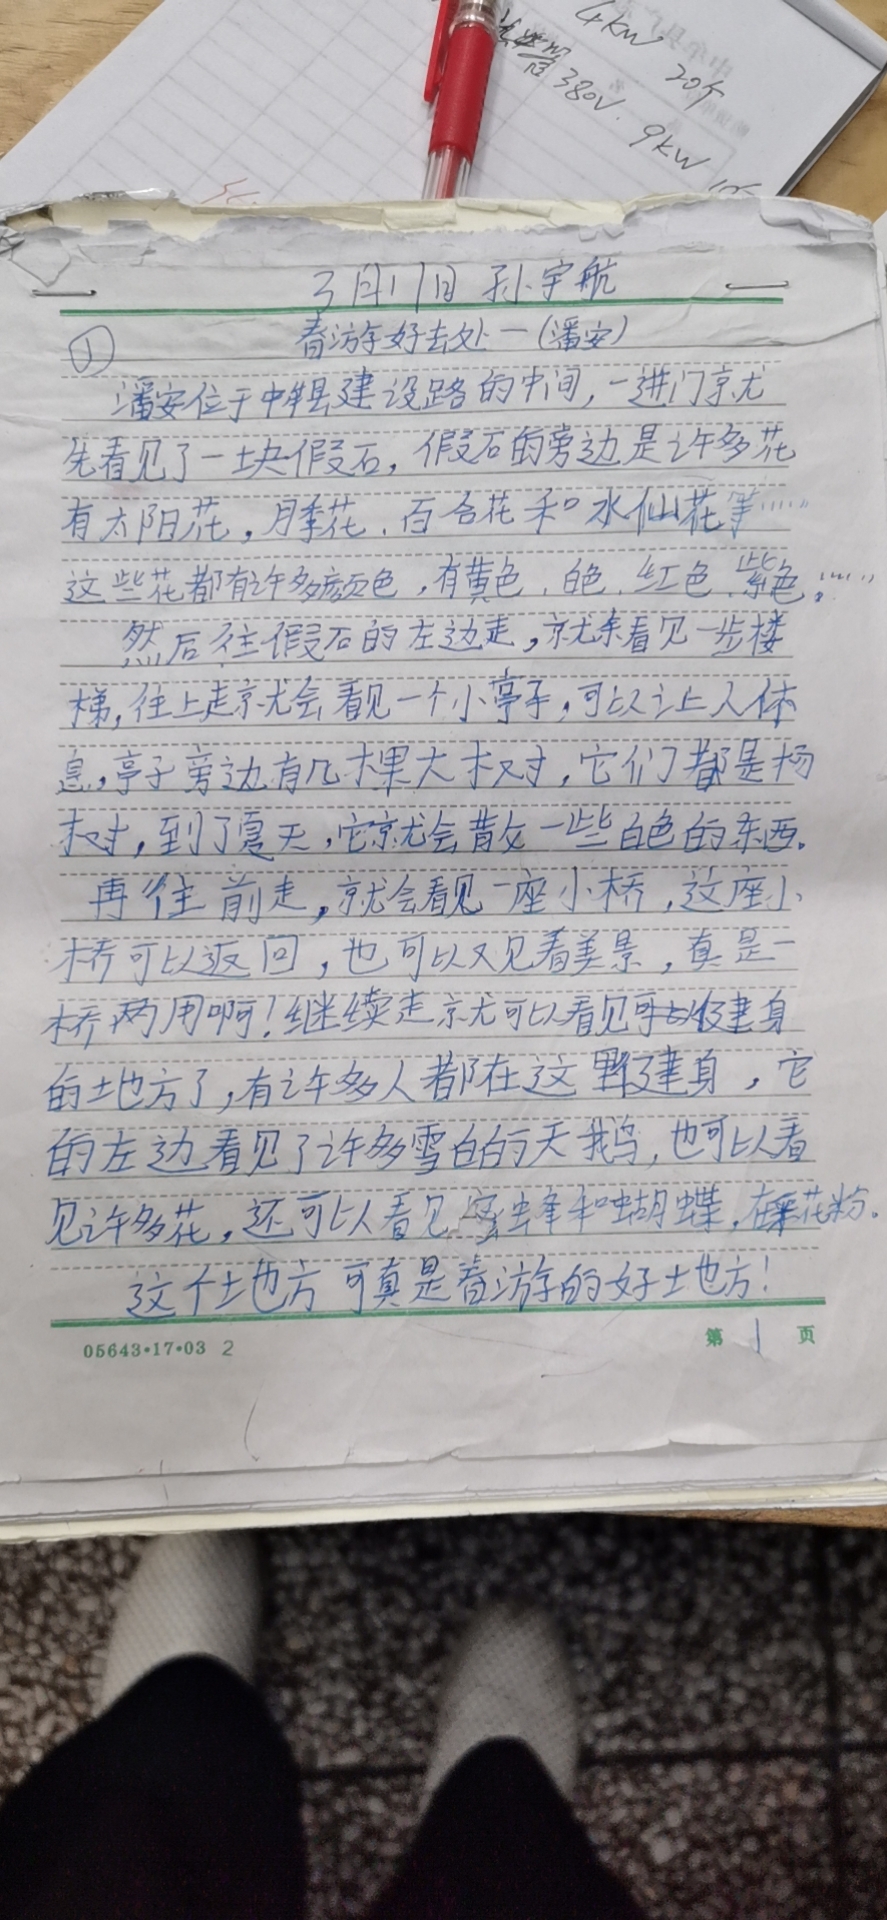 4KW 20个
380V. 9KW
3月17日 孙宇航
① 春游好去处一(潘安)
潘安位于中牟县建设路的中间,一进门就
先看见了一块假石,假石的旁边是许多花
有太阳花,月季花、百合花和水仙花等……
这些花都有许多颜色,有黄色、白色、红色、紫色。……
然后往假石的左边走,就来看见一步楼
梯,往上走就会看见一个小亭子,可以让人休
息,亭子旁边有几棵大树,它们都是杨
树,到了夏天,它就会散发一些白色的东西。
再往前走,就会看见一座小桥,这座小
桥可以返回,也可以又见看美景,真是一
桥两用啊!继续走就可以看见可以健身
的地方了,有许多人都在这里健身,它
的左边看见了许多雪白的天鹅,也可以看
见许多花,还可以看见蜜蜂和蝴蝶,在采花粉。
这个地方可真是春游的好地方!
05643·17·03 2 第 1 页